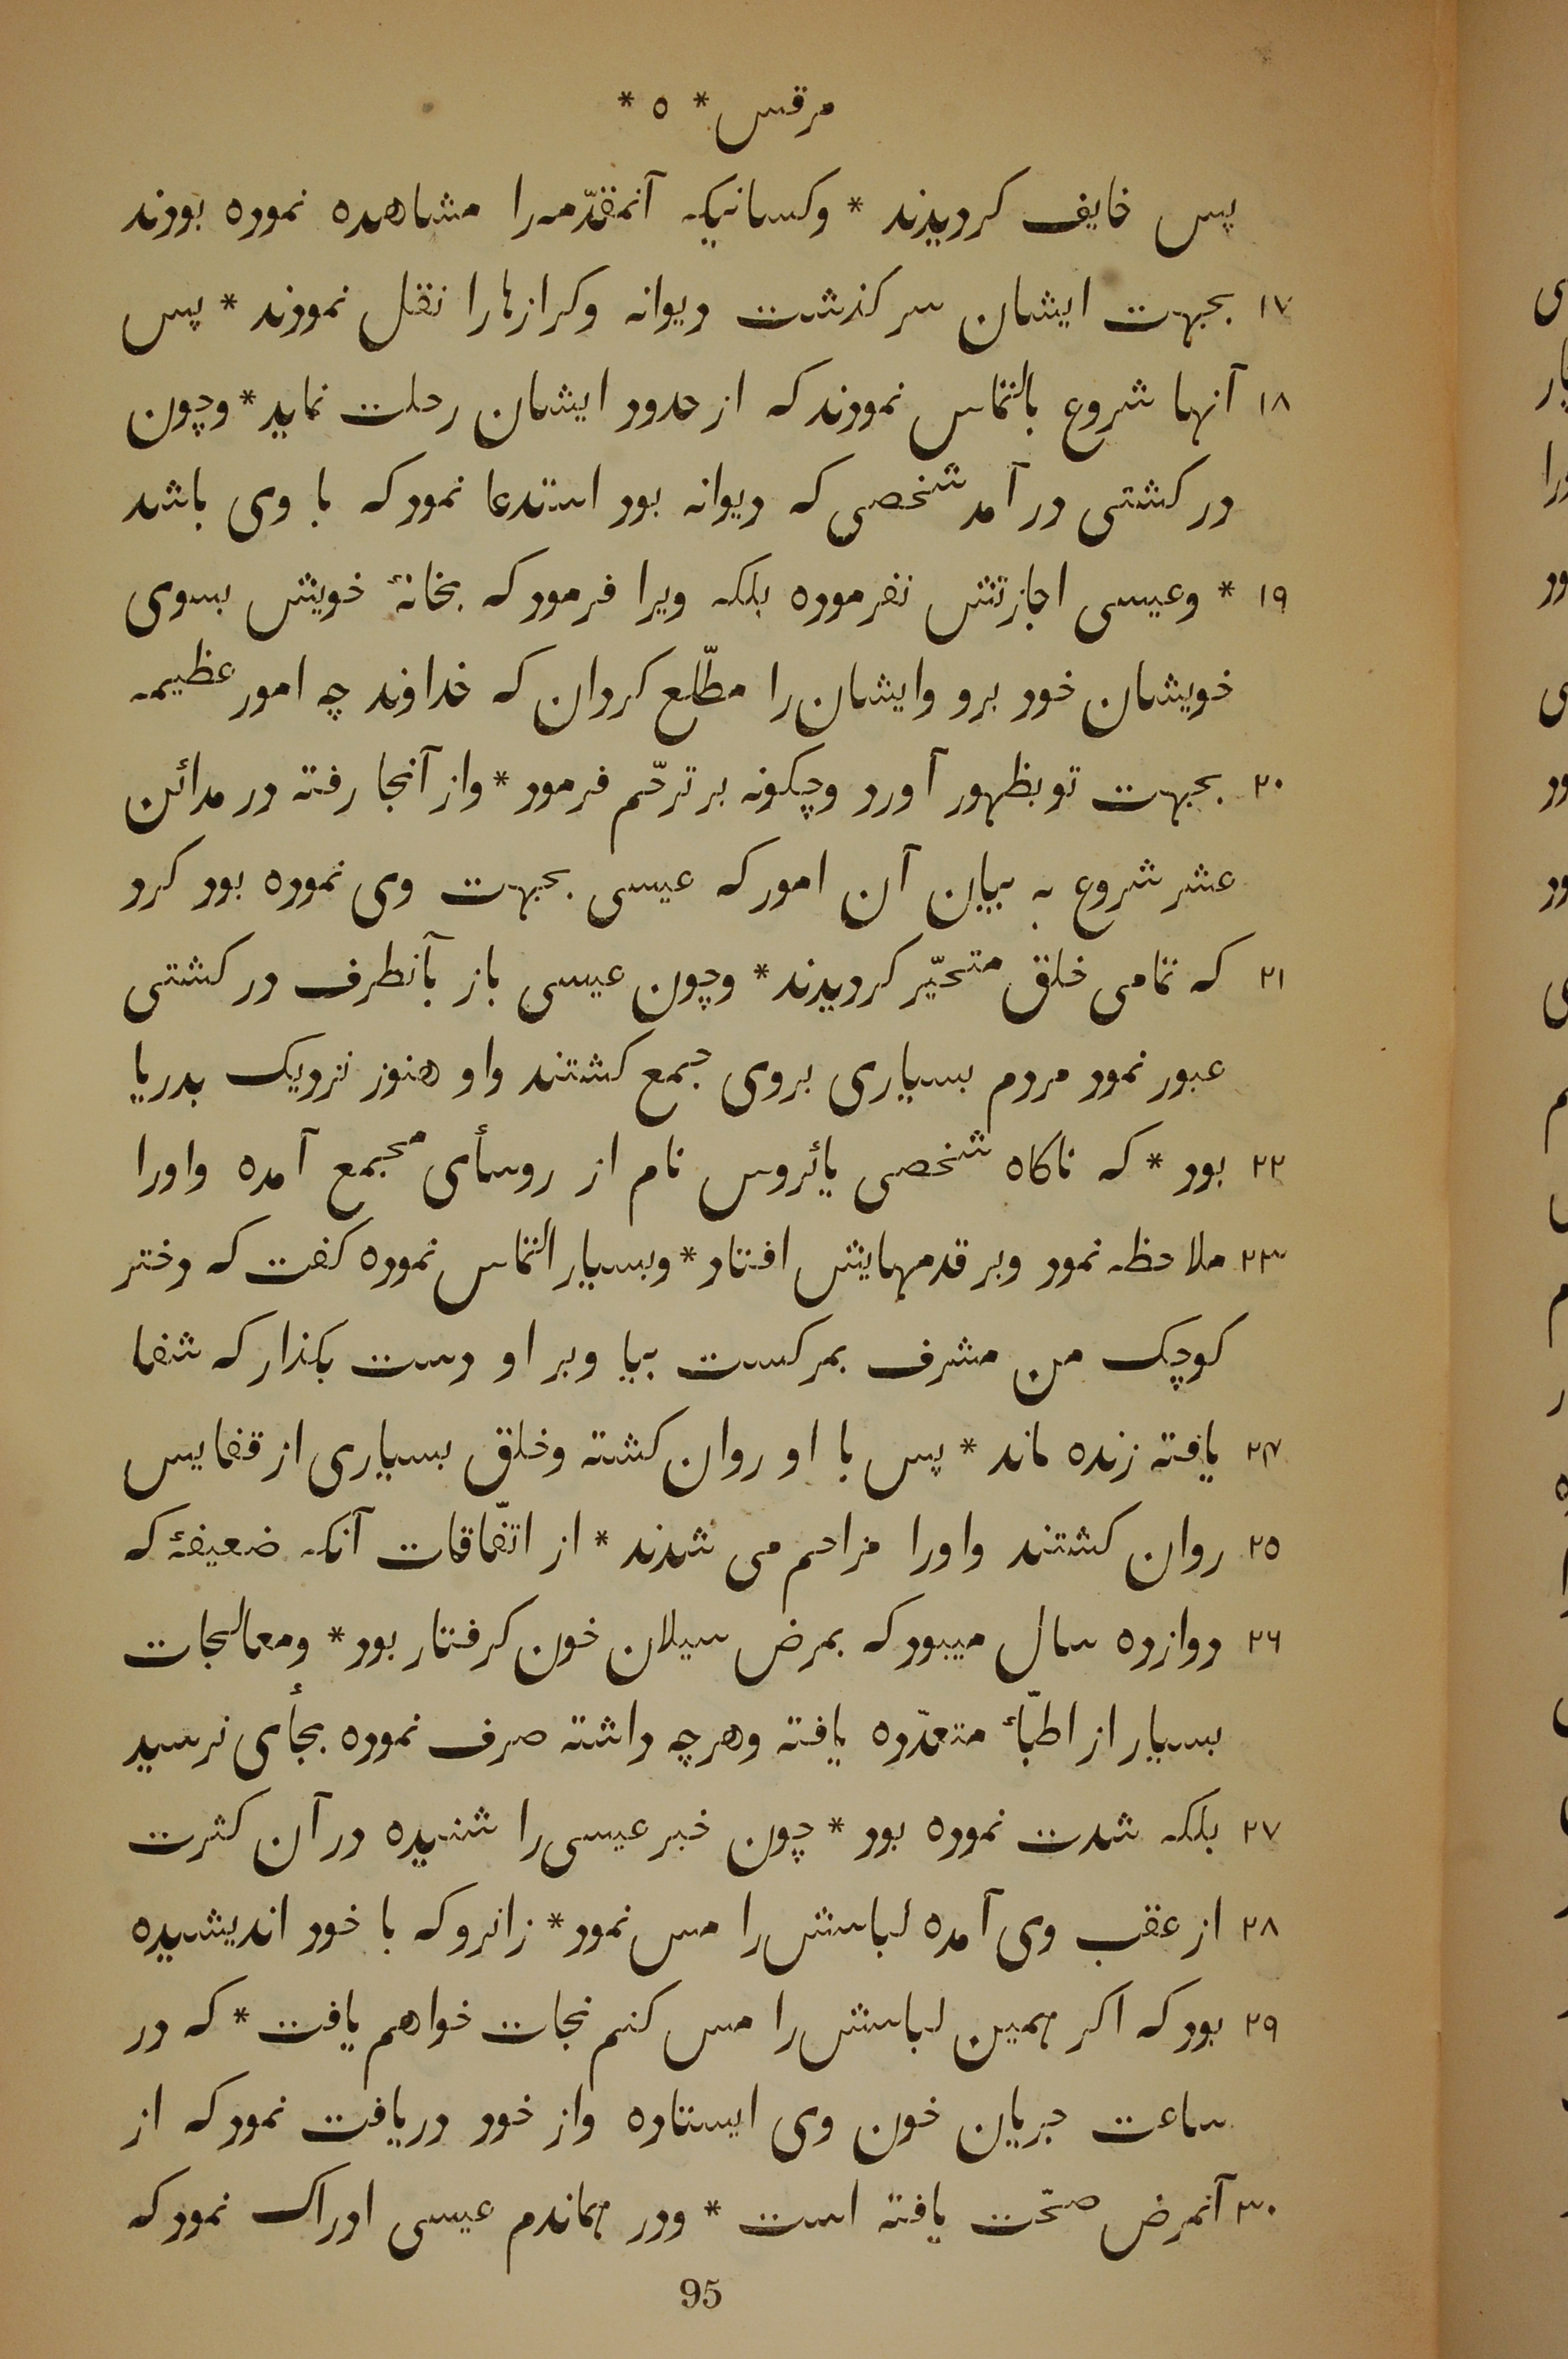 مرقس * ٥ *
پس خایف کردیدند * وکسانیکه آنمقدّمه‌را مشاهده نموده بودند
١٧ بجهت ایشان سرکذشت دیوانه وکرازها را نقل نمودند * پس
١٨ آنها شروع بالتماس نمودند که از حدود ایشان رحلت نماید * وچون
در کشتی در آمد شخصی که دیوانه بود استدعا نمود که با وی باشد
١٩ * وعیسی اجازتش نفرموده بلکه ویرا فرمود که بخانهٔ خویش بسوی
خویشان خود برو وایشان را مطّلع کردان که خداوند چه امور عظیمه
٢٠ بجهت تو بظهور آورد وچکونه بر ترحّم فرمود * واز آنجا رفته در مدائن
عشر شروع به بیان آن امور که عیسی بجهت وی نموده بود کرد
٢١ که تمامی خلق متحیّر کردیدند * وچون عیسی باز بآنطرف در کشتی
عبور نمود مردم بسیاری بروی جمع کشتند واو هنوز نزدیک بدریا
٢٢ بود * که ناکاه شخصی یائروس نام از روسأی مجمع آمده واورا
٢٣ ملاحظه نمود وبر قدمهایش افتاد * وبسیار التماس نموده کفت که دختر
کوچک من مشرف بمرکست بیا وبر او دست بکذار که شفا
٢۴ یافته زنده ماند * پس با او روان کشته وخلق بسیاری از قفایس
٢٥ روان کشتند واورا مزاحم می شدند * از اتّفاقات آنکه ضعیفهٔ که
٢٦ دوازده سال میبود که بمرض سیلان خون کرفتار بود * ومعالجات
بسیار از اطبّأ متعدّده یافته وهرچه داشته صرف نموده بجأی نرسید
٢٧ بلکه شدت نموده بود * چون خبر عیسی را شنیده در آن کثرت
٢٨ از عقب وی آمده لباسش را مس نمود * زانرو که با خود اندیشیده
٢٩ بود که اکر همین لباسش را مس کنم نجات خواهم یافت * که در
ساعت جریان خون وی ایستاده واز خود دریافت نمود که از
٣٠ آنمرض صحّت یافته است * ودر هماندم عیسی ادراک نمود که
95